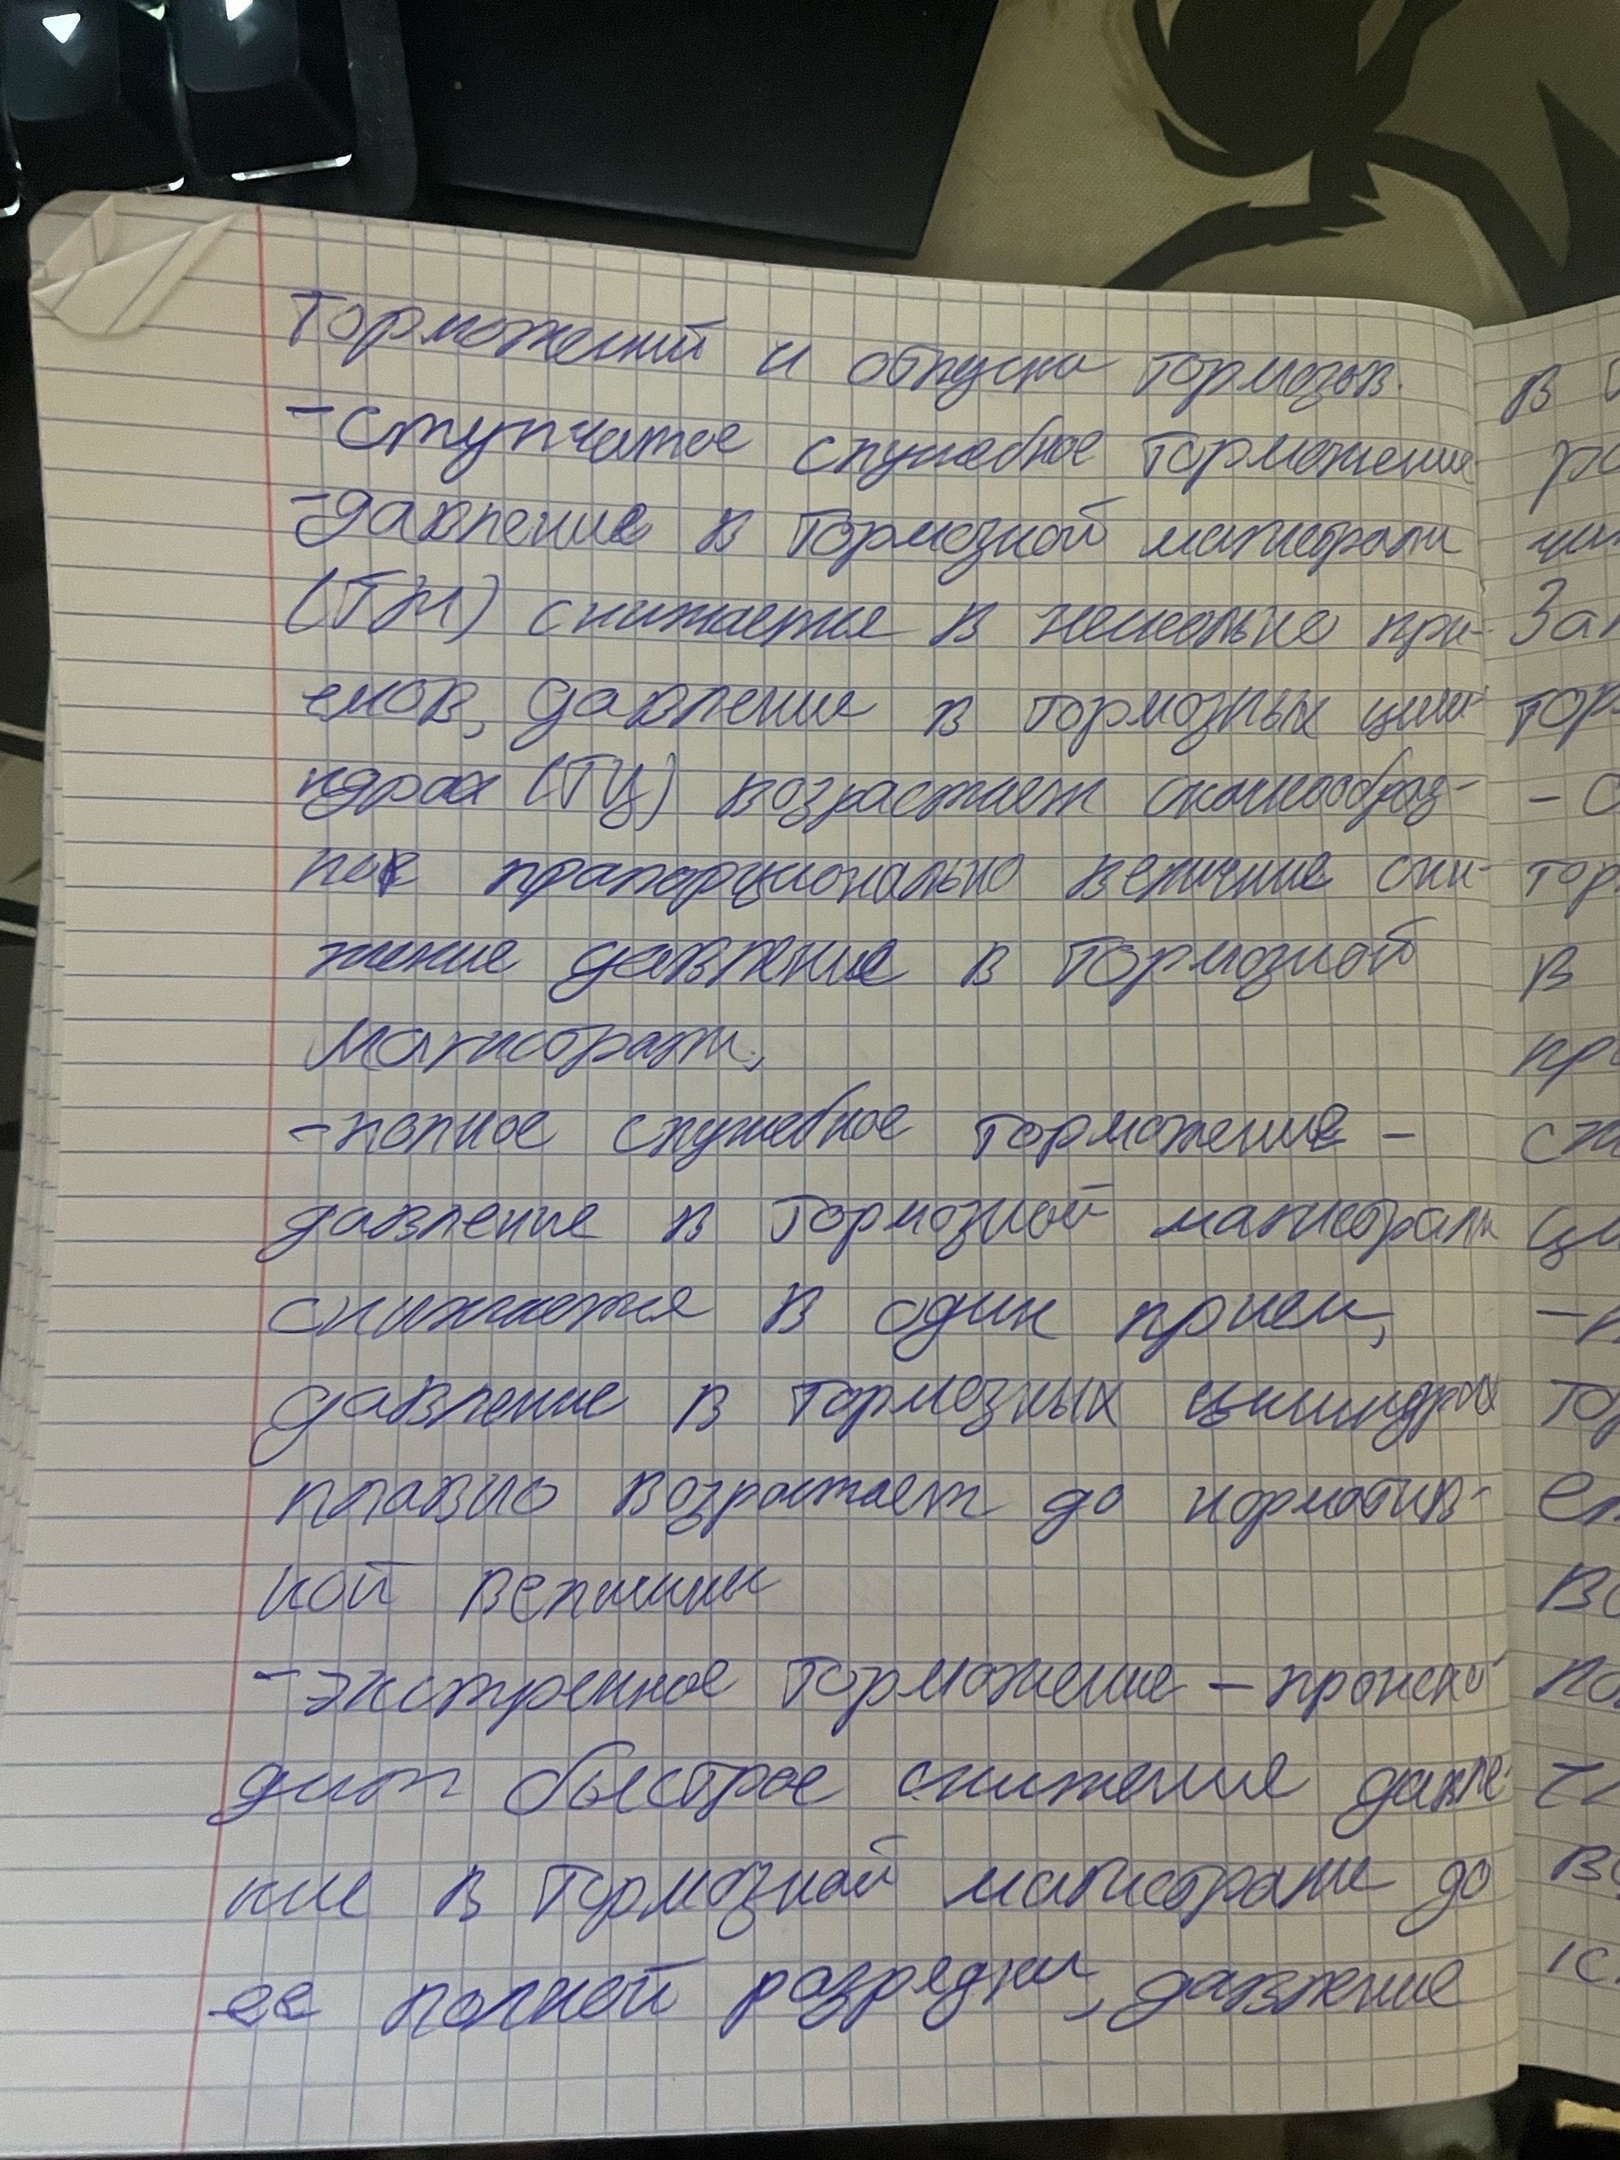 Торможений и отпуска тормозов.
-Ступчатое служебное торможение
-давление в тормозной магистрали
(ТМ) снижается в несколько при-
емов, давление в тормозных цили-
ндрах (ТЦ) возрастает скачкообраз-
но прапорционально величине сни-
жение давления в тормозной
магистрали,
-полное служебное торможение -
давление в тормозной магистрали
снижается в один прием,
давление в тормозных цилиндрах
плавно возрастает до норматив-
ной величины
-экстренное торможение - происхо-
дит быстрое снижение давле-
ние в тормозной магистрале до
ее полной разрядки, давление
в
Зап
тор
тор
в
пр